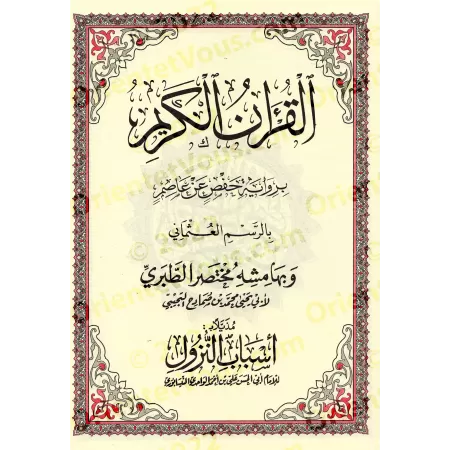 القرآن الكريم
برواية حفص عن عاصم
بالرسم العثماني
وبهامشه مختصر الطبري
لأبي يحيى محمد بن صمادح التجيبي
مذيلا بـ
أسباب النزول
للإمام أبي الحسن علي بن أحمد الواحدي النيسابوري
OrientetVous.com